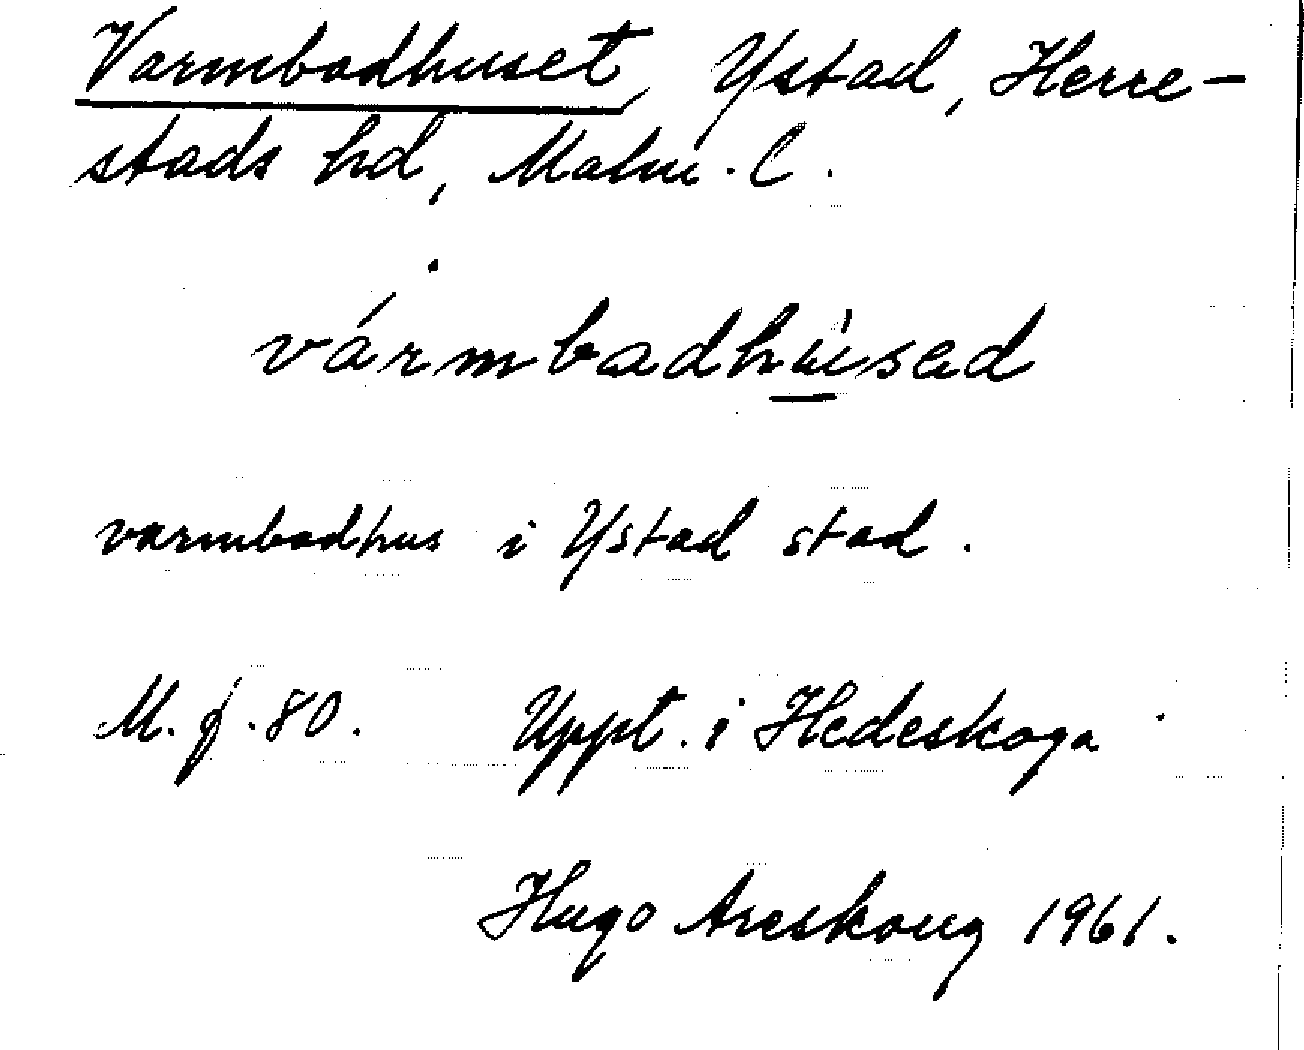 Varmbadhuset, Ystad, Herre-
stads hd, Malm. l.
vármbadhù̲sed
varmbadhus i Ystad stad.
M. f. 80. Uppt. i Hedeskoga
Hugo Areskoug 1961.